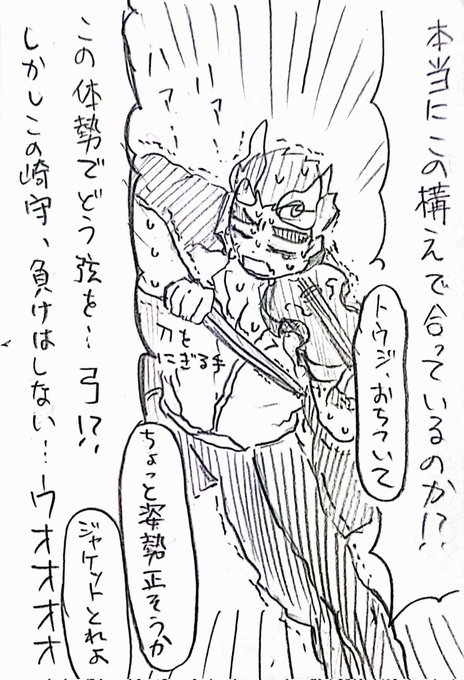 本当にこの構えで合っているのか!?
トウジ、おちついて
ハァ
ハァ
刀を
にぎる手
この体勢でどう弦を…弓!?
しかしこの崎守、負けはしない!ウオオオオ
ちょっと姿勢正そうか
ジャケットとれよ